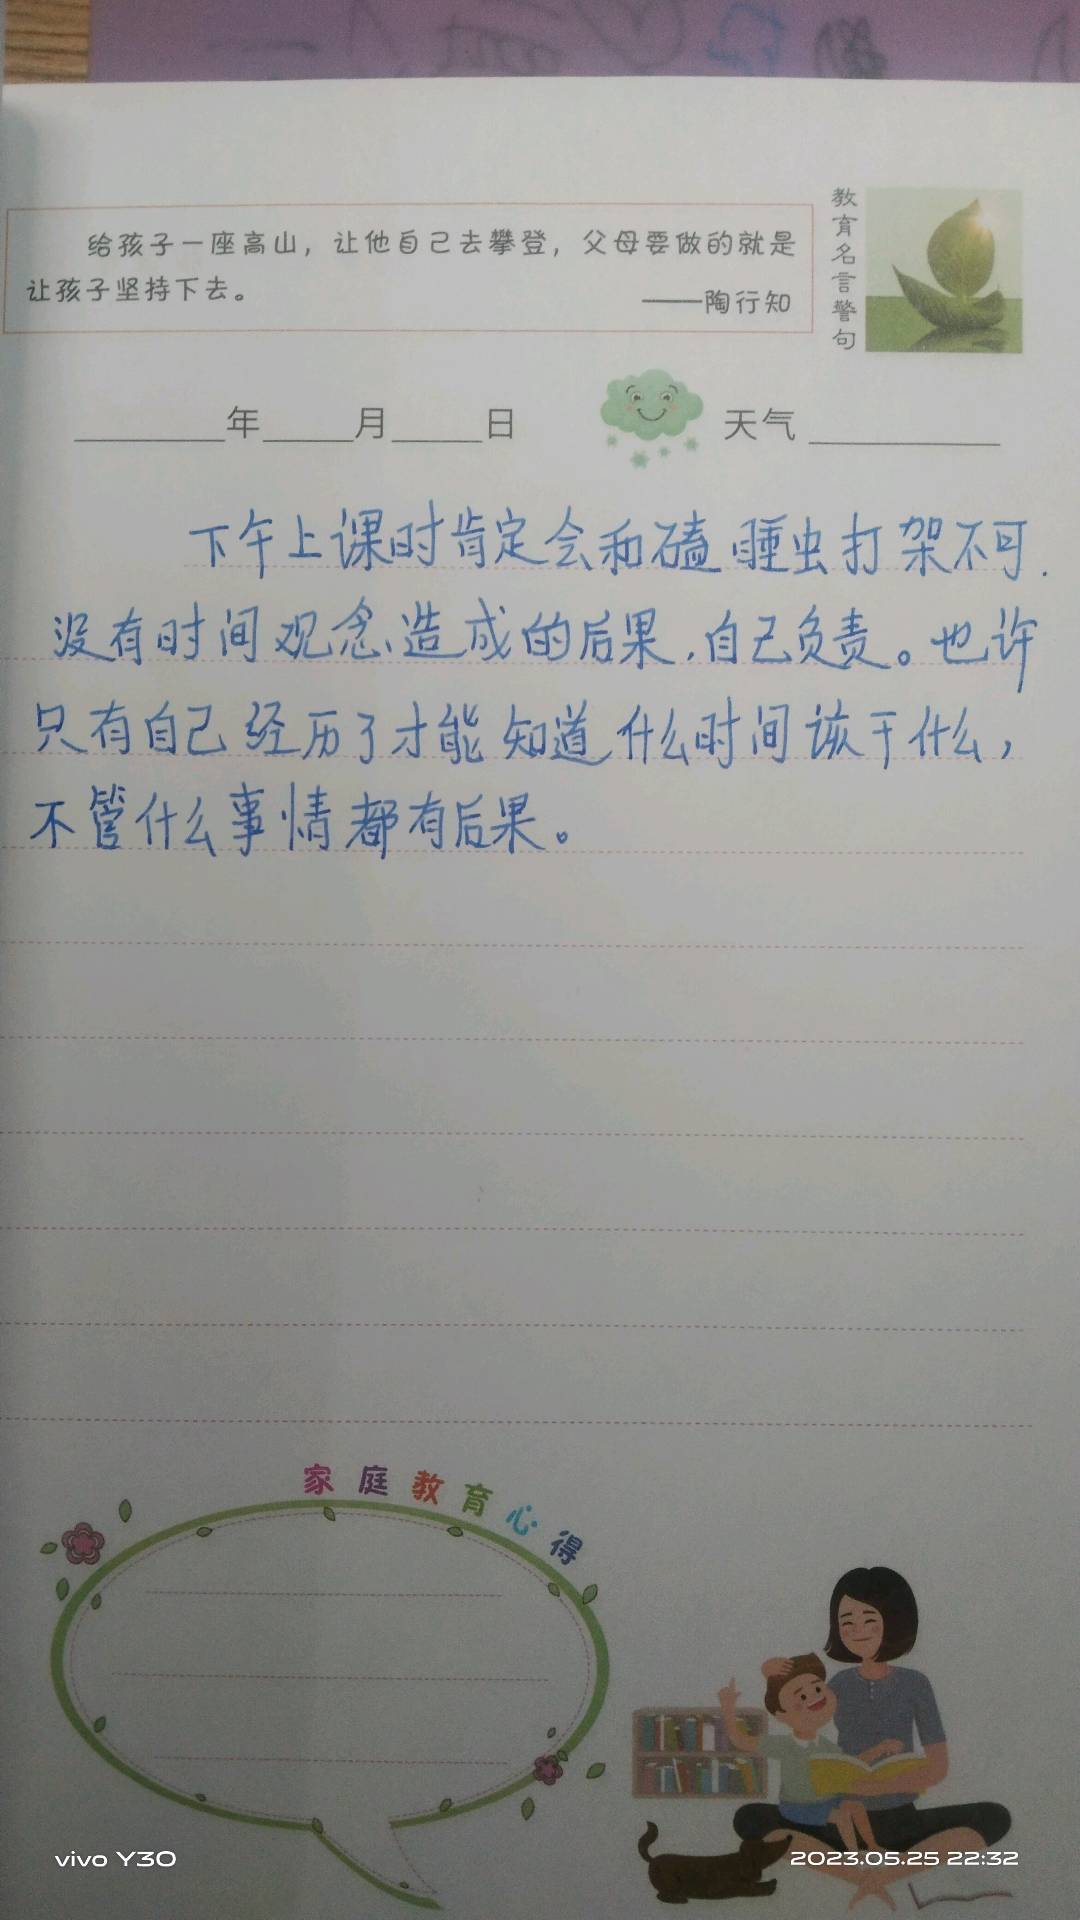 给孩子一座高山，让他自己去攀登，父母要做的就是
让孩子坚持下去。
——陶行知
教育名言警句
年 月 日 天气
下午上课时肯定会和磕睡虫打架不可.
没有时间观念造成的后果,自己负责。也许
只有自己经历了才能知道什么时间该干什么,
不管什么事情都有后果。
家庭教育心得
vivo Y30
2023.05.25 22:32